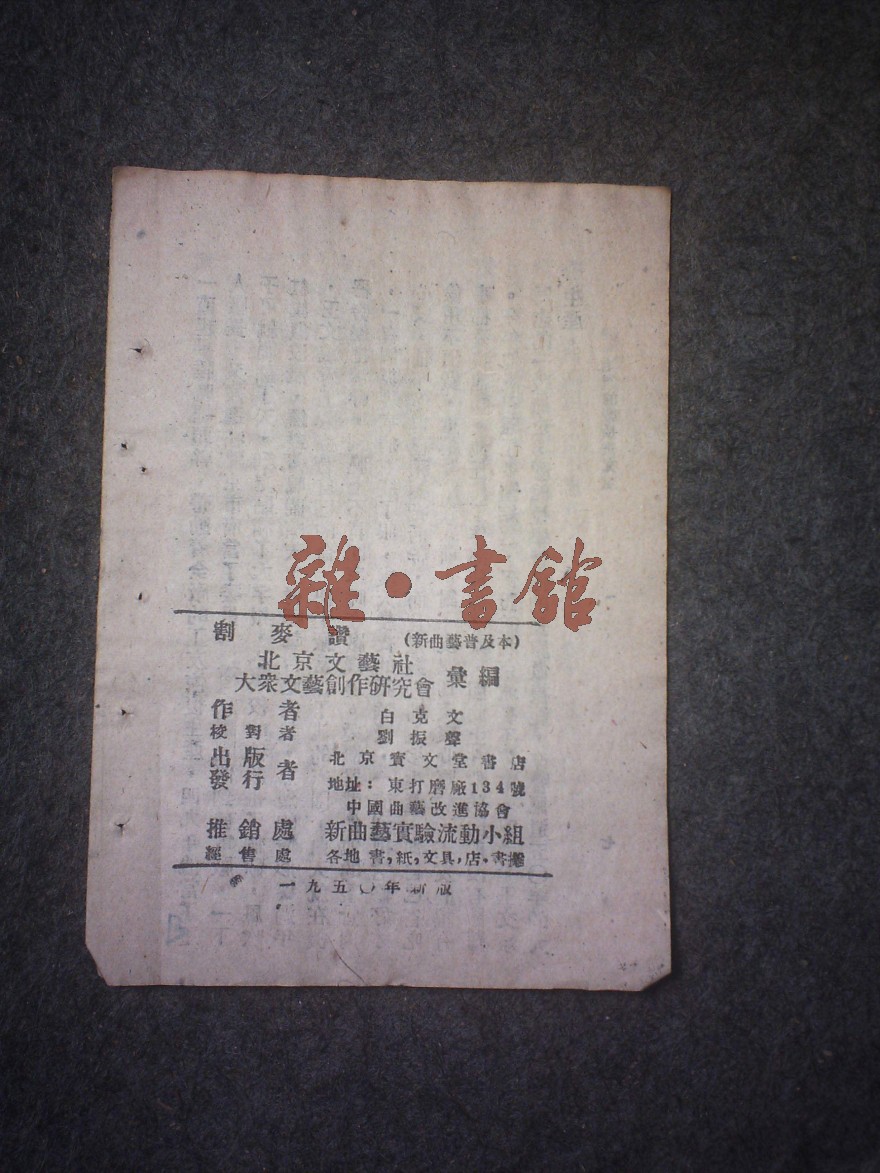 雜·書館
割麥讚 (新曲藝普及本)
北京文藝社
大衆文藝創作研究會 彙編
作者 白克文
校對者 劉振聲
出版
發行 者 北京寶文堂書店
地址：東打磨廠134號
中國曲藝改進協會
推銷處 新曲藝實驗流動小組
經售處 各地書,紙,文具,店·書攤
一九五〇年新版